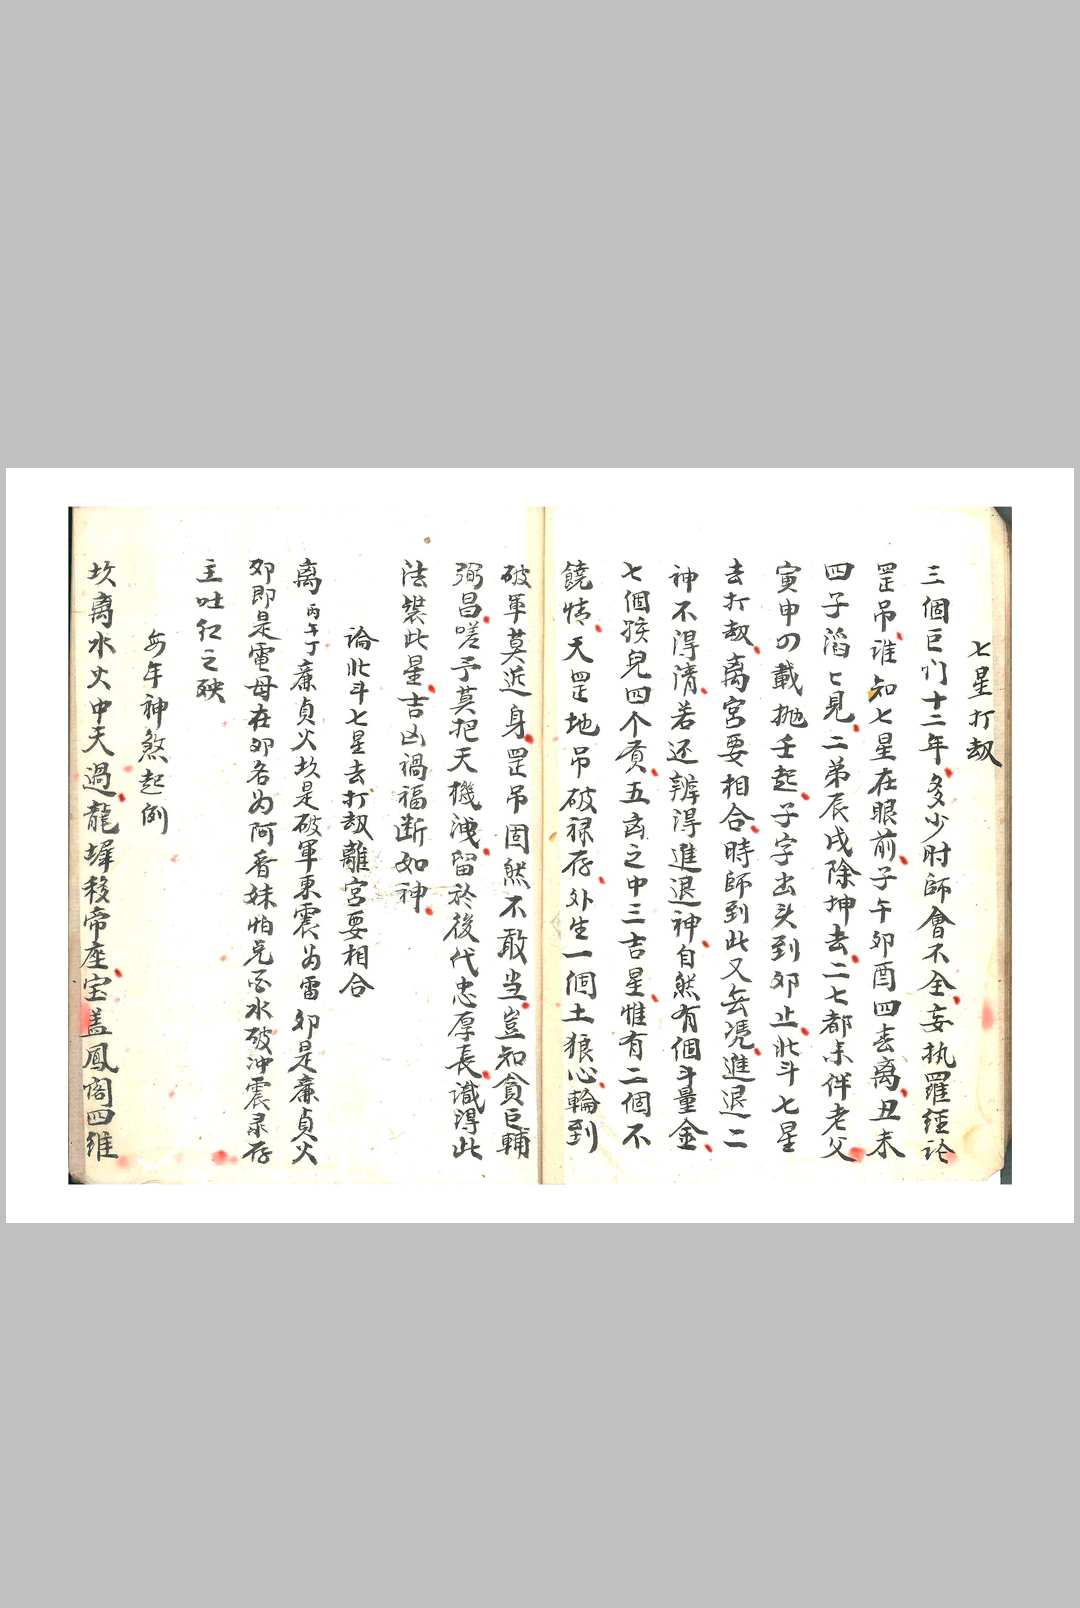 七星打劫
三個巨门十二年多少时師會不全妄执羅經论
罡吊谁知七星在眼前子午卯酉四去离丑未
四子滔匕見二弟辰戌除坤去二七都来伴老父
寅申の載抛壬起子字出头到卯止北斗七星
去打劫离宮要相合時師到此又無凭進退二
神不得清若还辨得進退神自然有個斗量金
七個孩兒四个贪五凶之中三吉星惟有二個不
饒情天罡地吊破禄存外生一個土狼心輪到
破軍莫近身罡吊固然不敢当豈知貪巨輔
弼昌嗟予莫把天機洩留於後代忠厚長識得此
法裝此星吉凶禍福断如神
論北斗七星去打劫離宮要相合
离丙午丁廉貞火坎是破軍東震为雷卯是廉貞火
卯即是電母在卯名为阿香妹怕見水破冲震录存
主吐红之殃
每年神煞起例
坎离水火中天過龍墀移帝座宝蓋鳳阁四维